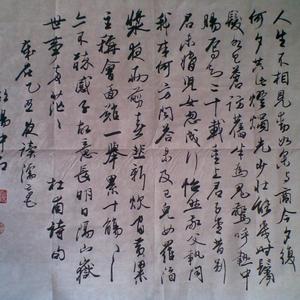 人生不相見動如參與商今夕復
何夕共此燈燭光少壯能幾時鬢
髮各已蒼訪舊半為鬼驚呼熱中
腸焉知二十載重上君子堂昔別
君未婚兒女忽成行怡然敬父執問
我來何方問答未及已兒女羅酒
漿夜雨剪春韭新炊間黃粱
主稱會面難一舉累十觴
亦不醉感子故意長明日隔山嶽
世事兩茫茫 杜甫詩
乙丑夜讀